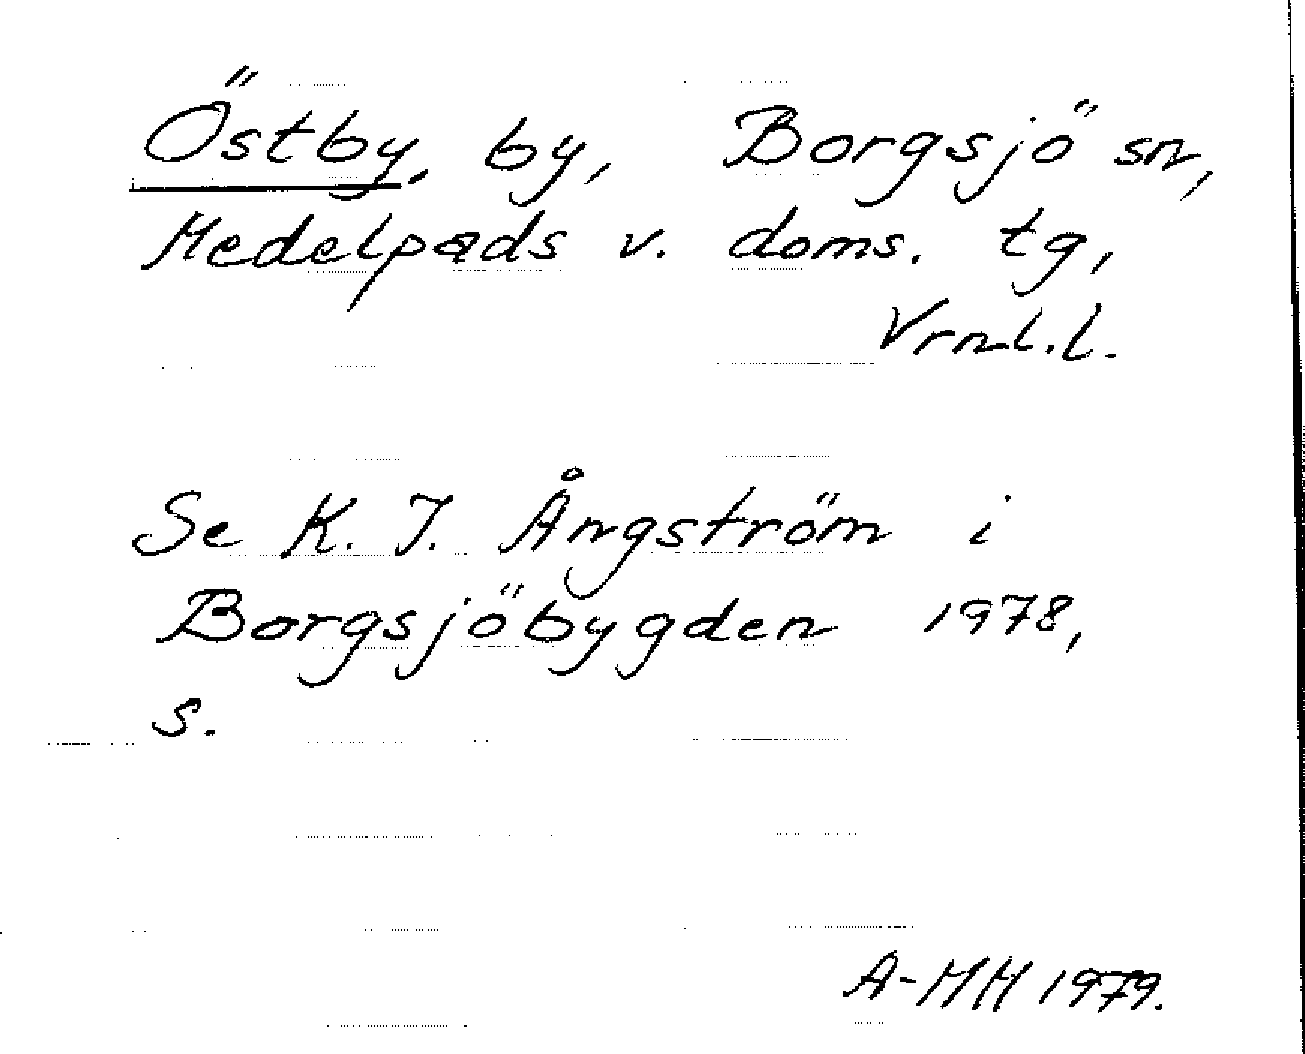 Östby, by, Borgsjö sn,
Medelpads v. doms. tg,
Vrnl.l.
Se K. J. Ångström i
Borgsjöbygden 1978,
s.
A-MH 1979.